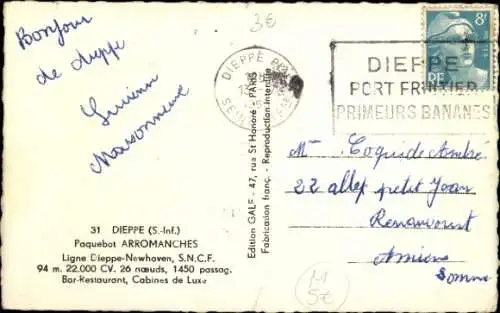 3€
Bonjour
de dieppe
Maisonneuve
8F
RF
DIEPPE
DIEPPE
PORT FRUITIER
PRIMEURS BANANES
Edition GAL - 47, rue St Honoré - PARIS
Fabrication franç. - Reproduction interdite
Mr Coquide André
22 allée petit Jean
Amiens
Somme
31 DIEPPE (S.-Inf.)
Paquebot ARROMANCHES
Ligne Dieppe-Newhaven, S.N.C.F.
94 m. 22.000 CV. 26 nœuds, 1450 passag.
Bar-Restaurant, Cabines de Luxe